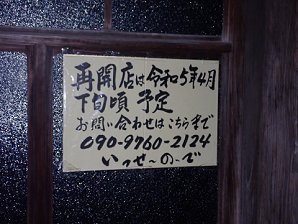 再開店は令和5年4月
下旬頃 予定
お問い合わせはこちらまで
090-9760-2124
いっせ〜の〜で